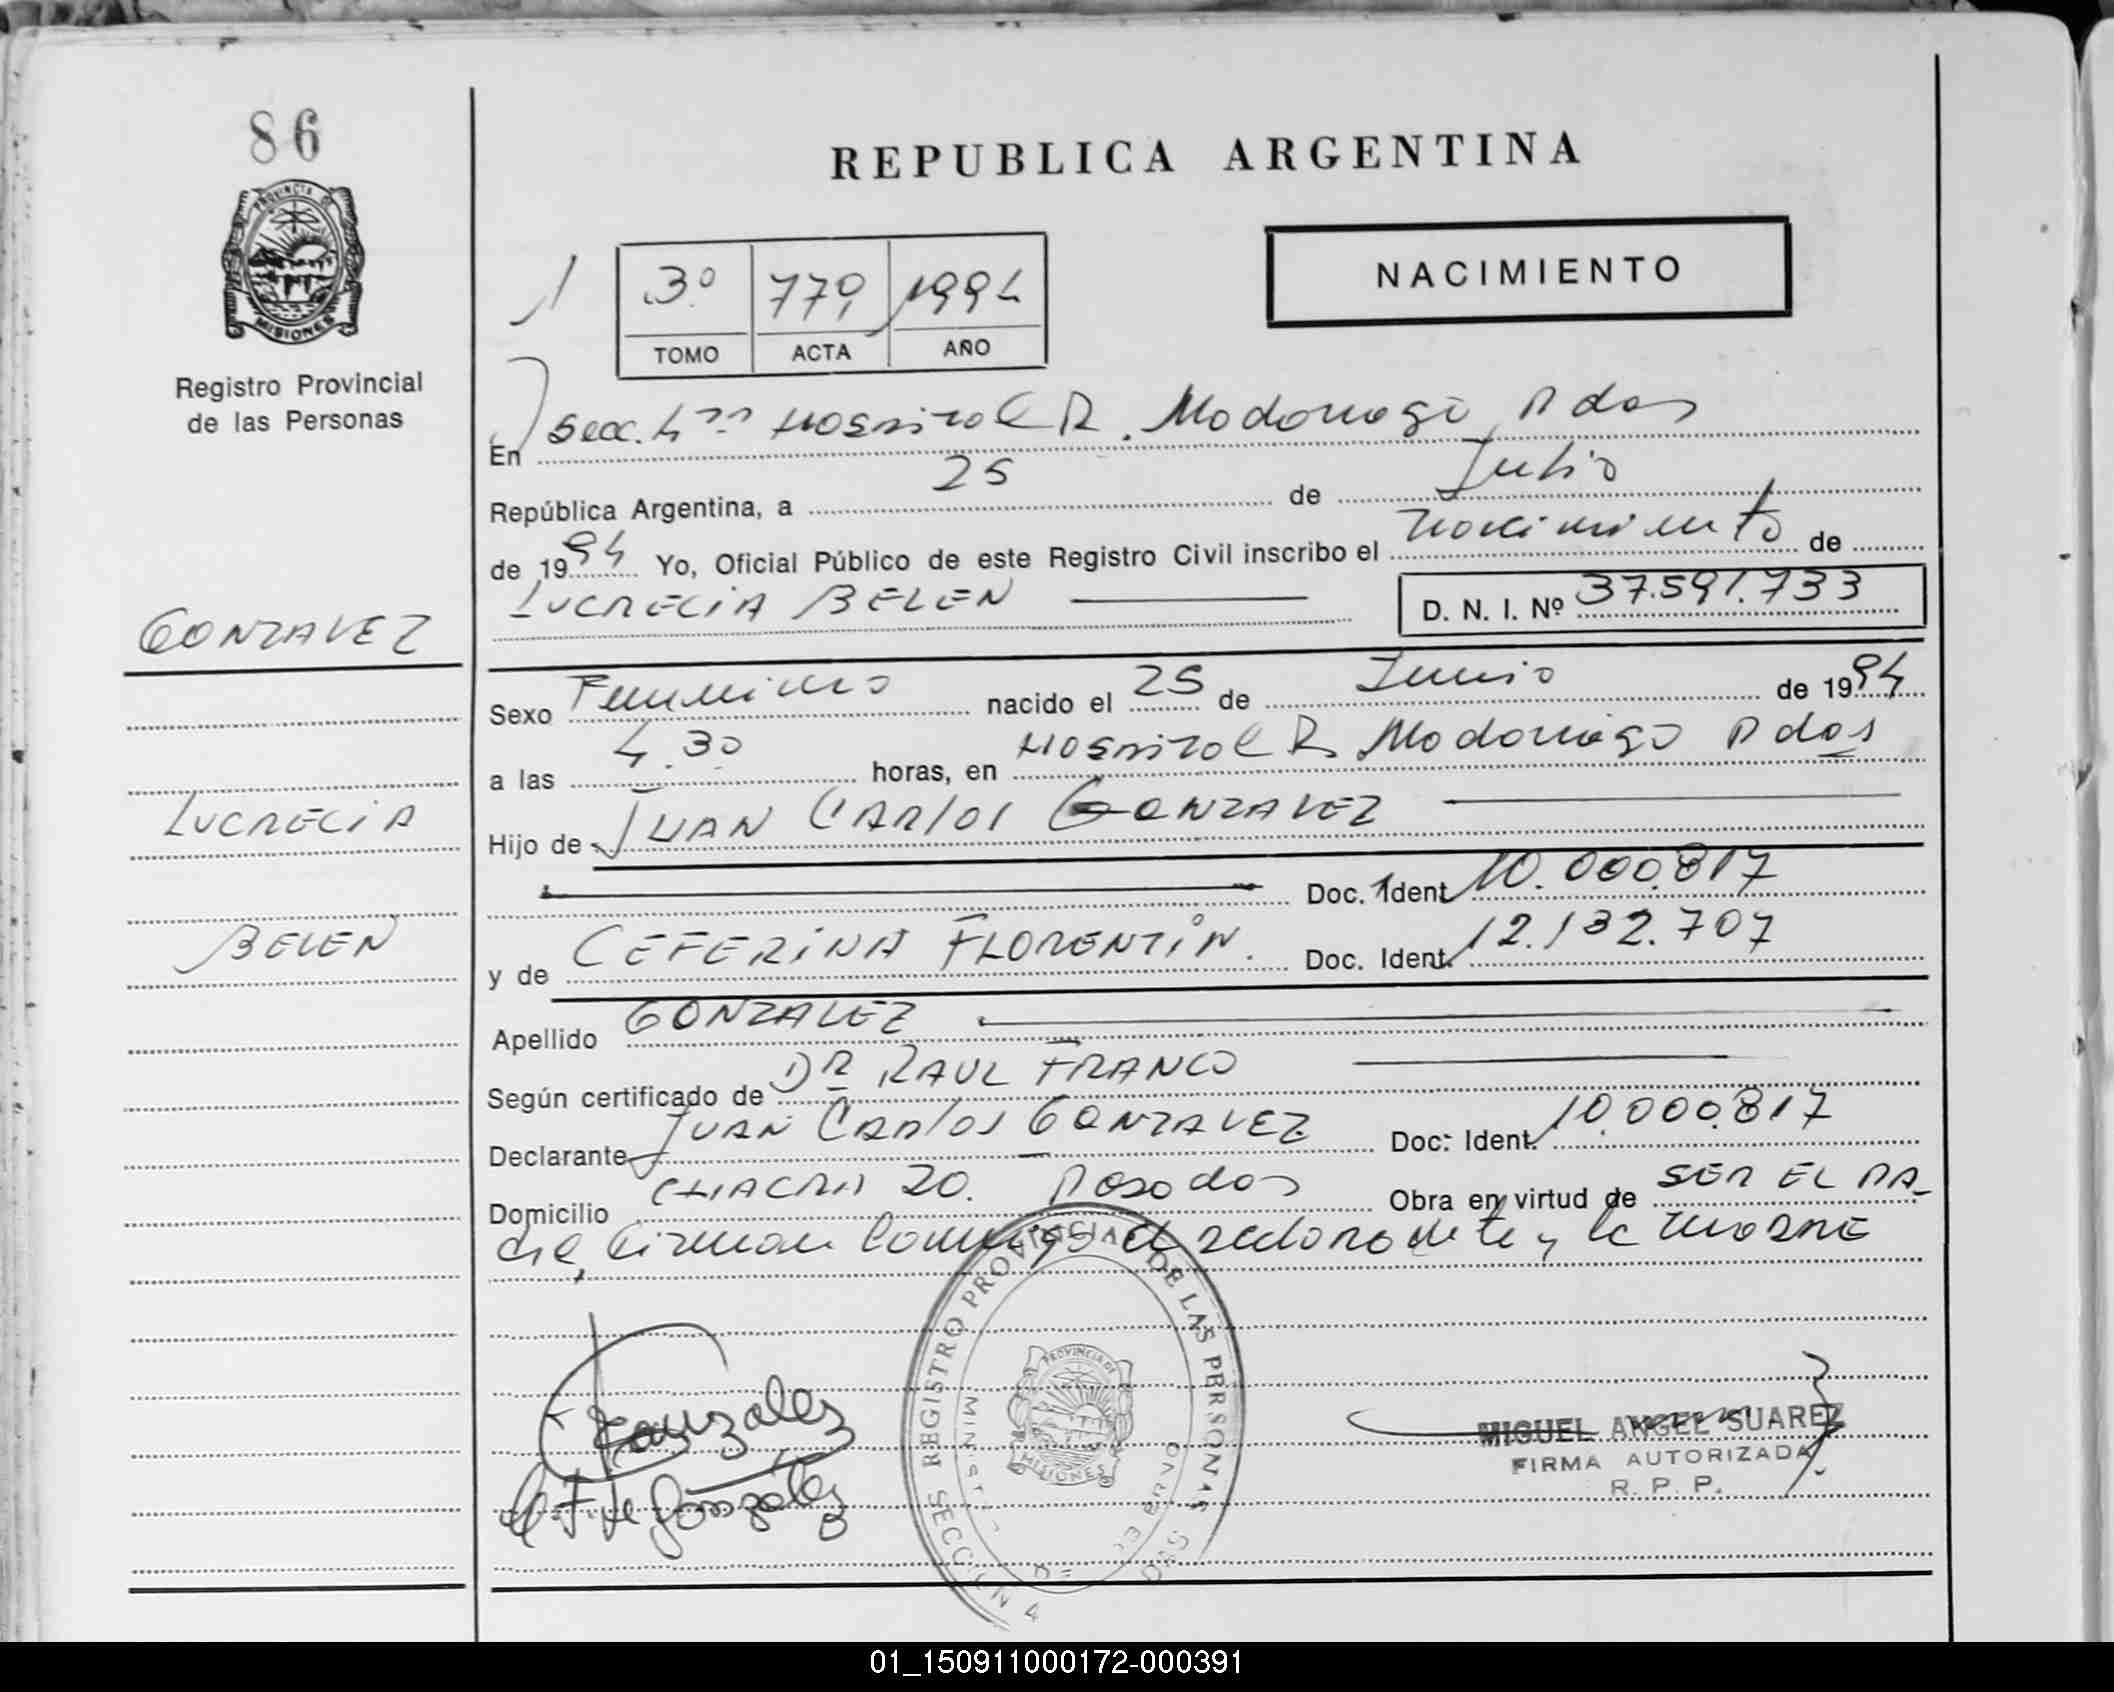 86
REPUBLICA ARGENTINA
PROVINCIA DE
MISIONES
Registro Provincial
de las Personas
NACIMIENTO
3º 779 1994
TOMO ACTA AÑO
En Secc. 4ta Hospital R. Madariaga Pdas
República Argentina, a 25 de Julio
de 1994 Yo, Oficial Público de este Registro Civil inscribo el nacimiento de
LUCRECIA BELEN D. N. I. Nº 37.591.733
GONZALEZ
LUCRECIA
BELEN
Sexo Femenino nacido el 25 de Junio de 1994
a las 4.30 horas, en Hospital R. Madariaga Pdas
Hijo de JUAN CARLOS GONZALEZ
Doc. Ident 10.000.817
y de CEFERINA FLORENTIN. Doc. Ident. 12.132.707
Apellido GONZALEZ
Según certificado de DR RAUL FRANCO
Declarante JUAN CARLOS GONZALEZ Doc. Ident. 10.000.817
Domicilio CHACRA 20. Posadas Obra en virtud de SER EL PA-
dre, firman conmigo el declarante y la madre
REGISTRO PROVINCIAL DE LAS PERSONAS
PROVINCIA DE
MISIONES
SECCION 4
Gonzalez
de Gonzalez
MIGUEL ANGEL SUAREZ
FIRMA AUTORIZADA
R. P. P.
01_150911000172-000391